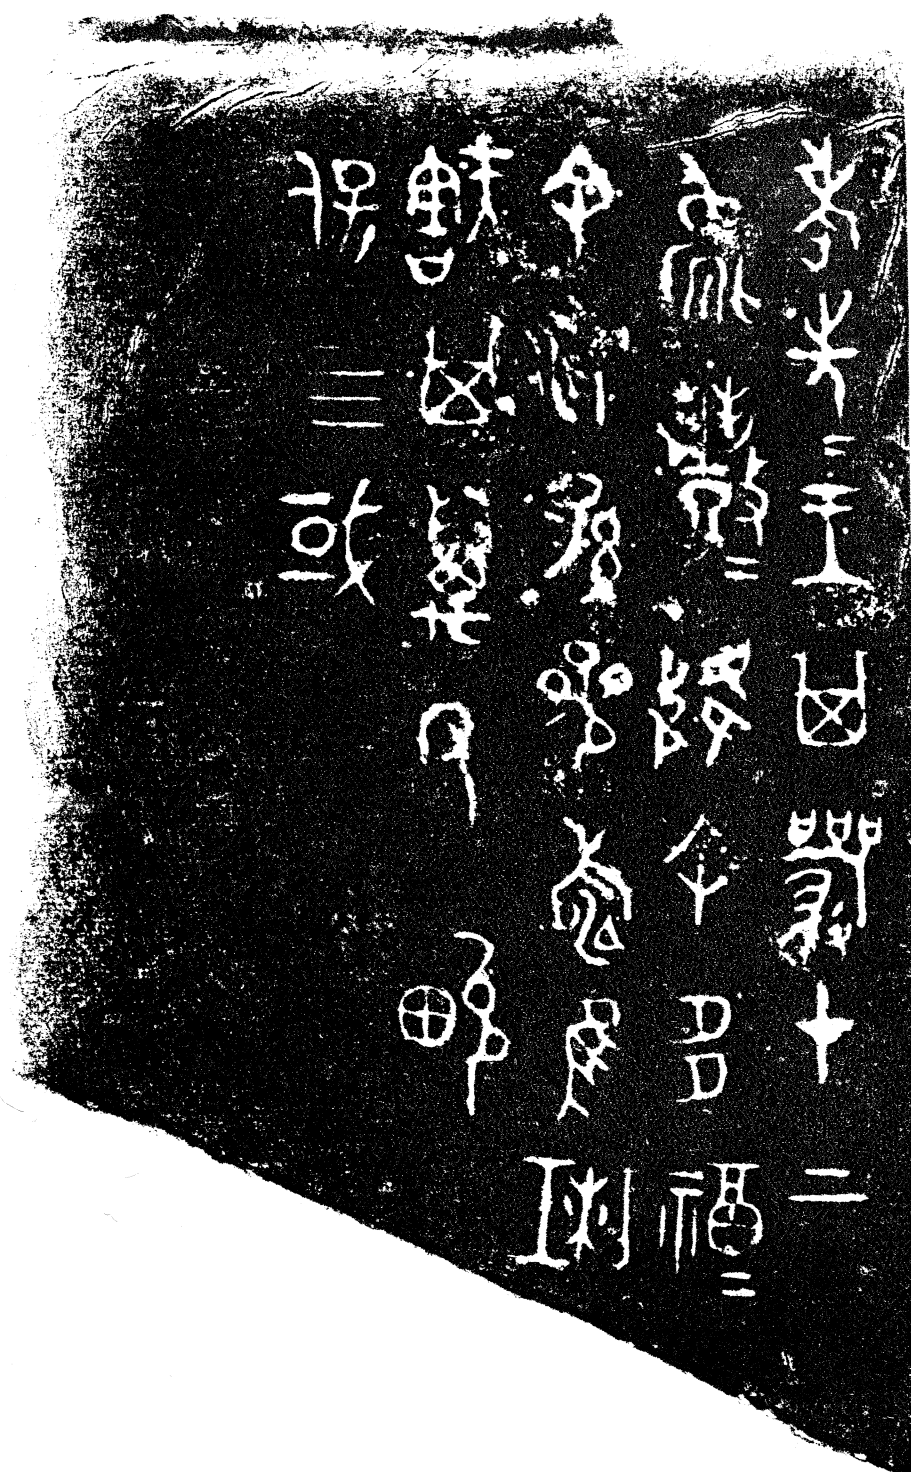 考先=王其嚴才上
𢾭=降余多福=
余順孫參壽隹琍
㝬其萬年畯
保四或